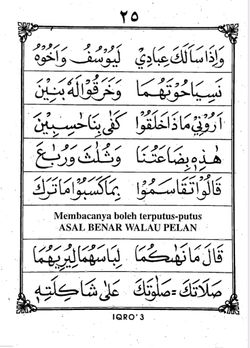 ٢٥
وَإِذَا سَاَلَكَ عِبَادِيْ لَيُوْسُفُ وَاَخُوْهُ
نَسِيَاحُوْتَهُمَا وَخَرَقُوْالَهٗ بَنِيْنَ
اَرُوْنِيْ مَاذَا خَلَقُوْا كَفٰى بِنَا حٰسِبِيْنَ
هٰذِهٖ بِضَاعَتُنَا وَثُلٰثَ وَرُبٰعَ
قَالُوْا تَقَاسَمُوْا بِمَا كَسَبُوْا مَا تَرَكَ
Membacanya boleh terputus-putus
ASAL BENAR WALAU PELAN
قَالَ مَا نَهٰىكُمَا لِبَاسَهُمَا لِيُرِيَهُمَا
صَلَاتَكَ = صَلٰوتَكَ عَلٰى شَاكِلَتِهٖ
IQRO' 3